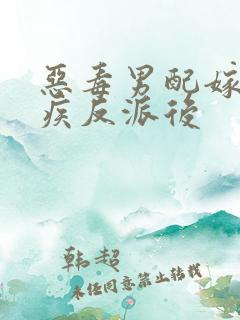 惡毒男配嫁
疾反派後
韩超
未经同意禁止转载